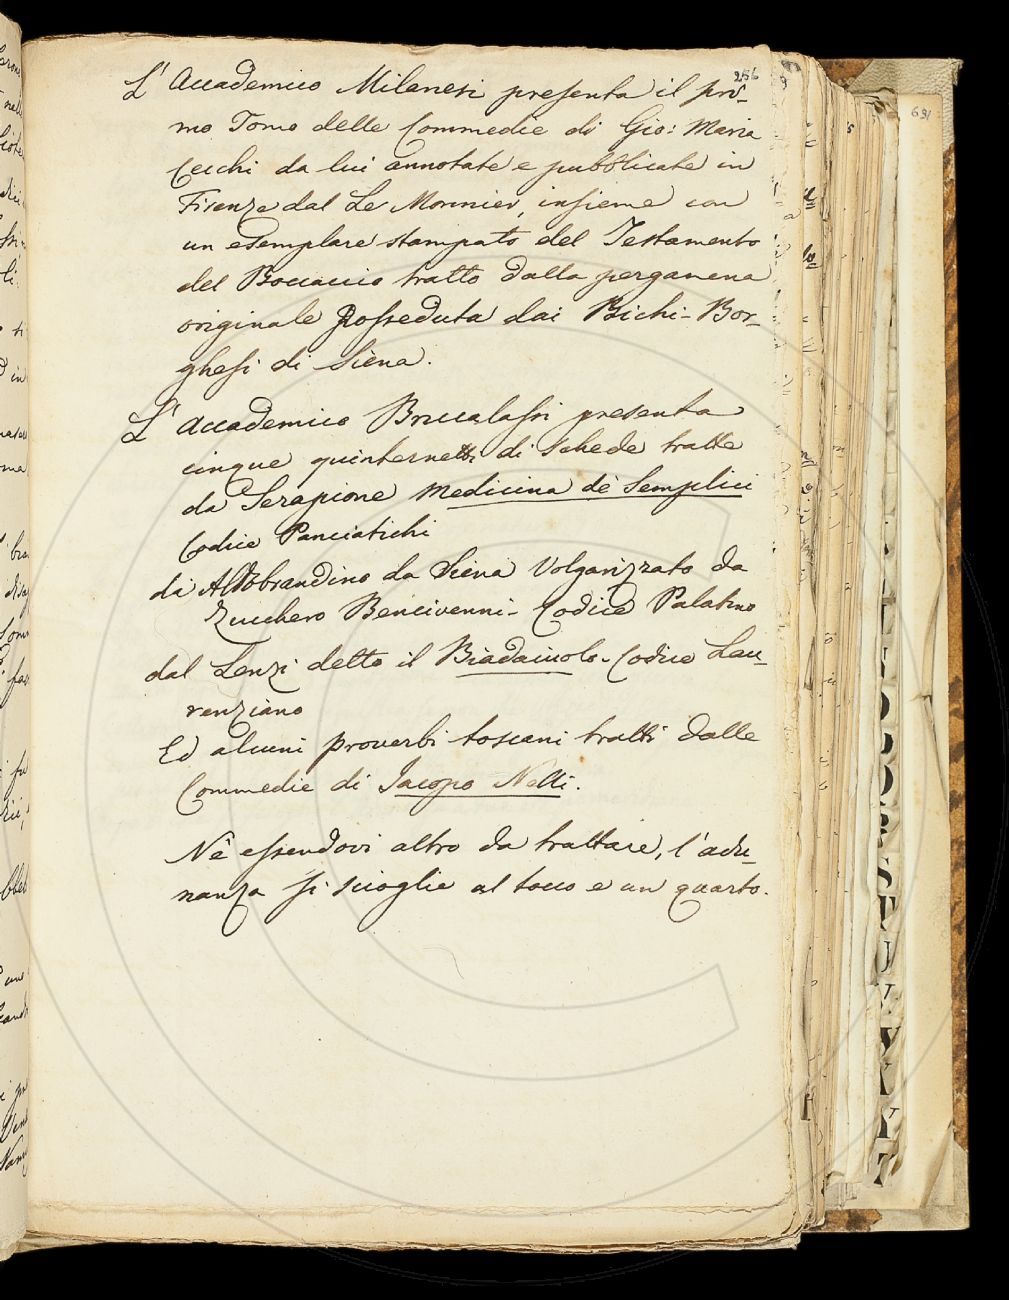 256
L'Accademico Milanesi presenta il pri-
mo Tomo delle Commedie di Gio: Maria
Cecchi da lui annotate e pubblicate in
Firenze dal Le Monnier, insieme con
un esemplare stampato del Testamento
del Boccaccio tratto dalla pergamena
originale posseduta dai Bichi-Bor-
ghesi di Siena.
L'Accademico Bruccalassi presenta
cinque quinternetti di schede tratte
da Serapione Medicina de' Semplici
Codice Panciatichi
di Aldobrandino da Siena Volgarizzato da
Zucchero Bencivenni - Codice Palatino
dal Lenzi detto il Biadaiuolo - Codice Lau-
renziano
Ed alcuni proverbi toscani tratti dalle
Commedie di Jacopo Nelli.
Nè essendovi altro da trattare, l'adu-
nanza si scioglie al tocco e un quarto.
691
S
T
U
V
X
Y
Z